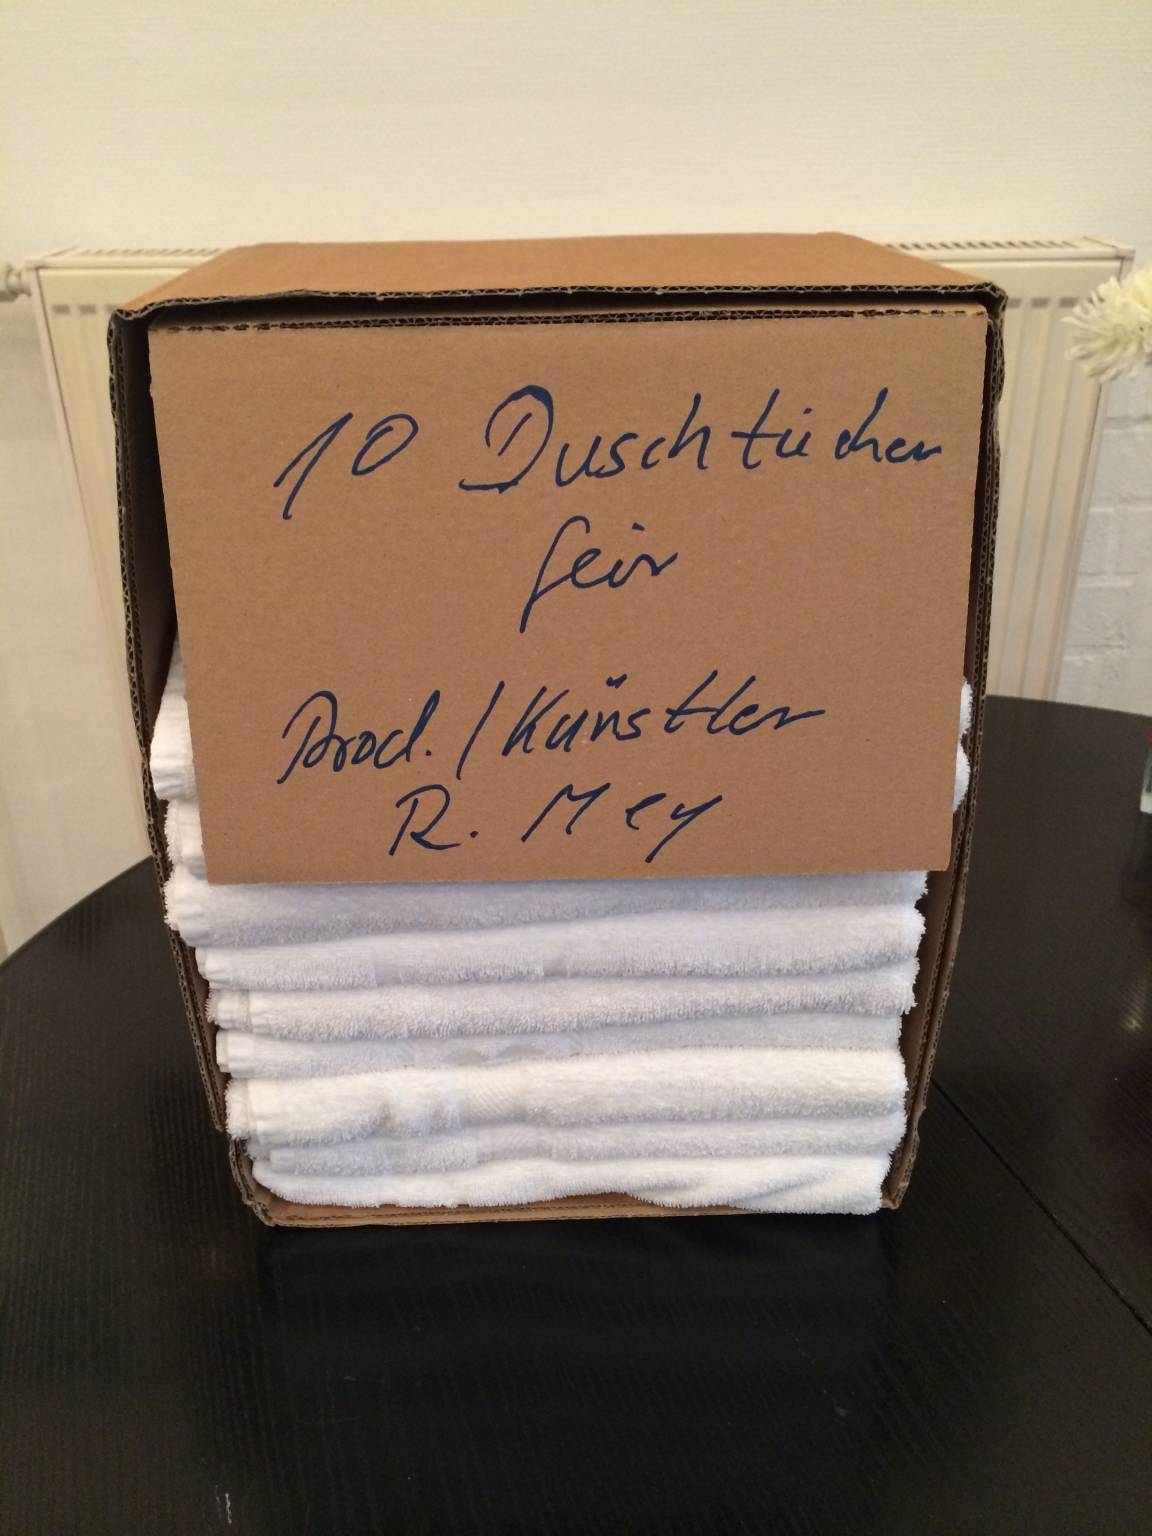 10 Duschtücher
für
Prod. / Künstler
R. Mey